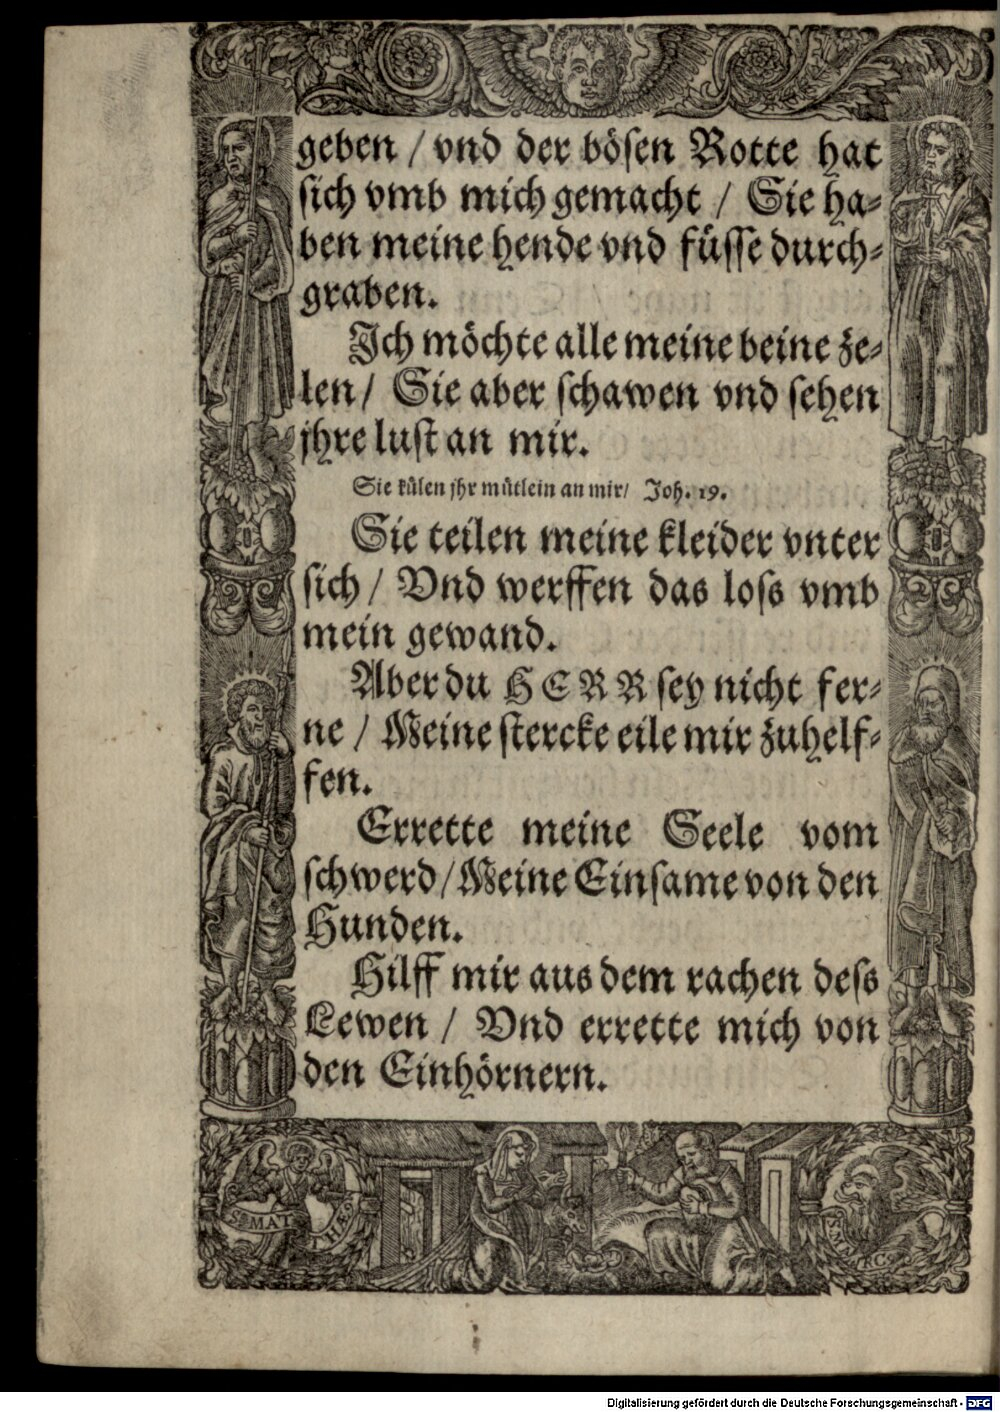 geben / vnd der bösen Rotte hat
sich vmb mich gemacht / Sie ha-
ben meine hende vnd füsse durch-
graben.
Ich möchte alle meine beine ze-
len / Sie aber schawen vnd sehen
jhre lust an mir.
Sie külen jhr mütlein an mir / Joh. 19.
Sie teilen meine kleider vnter
sich / Vnd werffen das loss vmb
mein gewand.
Aber du HERR sey nicht fer-
ne / Meine stercke eile mir zuhelf-
fen.
Errette meine Seele vom
schwerd / Meine Einsame von den
Hunden.
Hilff mir aus dem rachen dess
Lewen / Vnd errette mich von
den Einhörnern.
S. MAT
HÆ9
S. MA
RC9
Digitalisierung gefördert durch die Deutsche Forschungsgemeinschaft - DFG